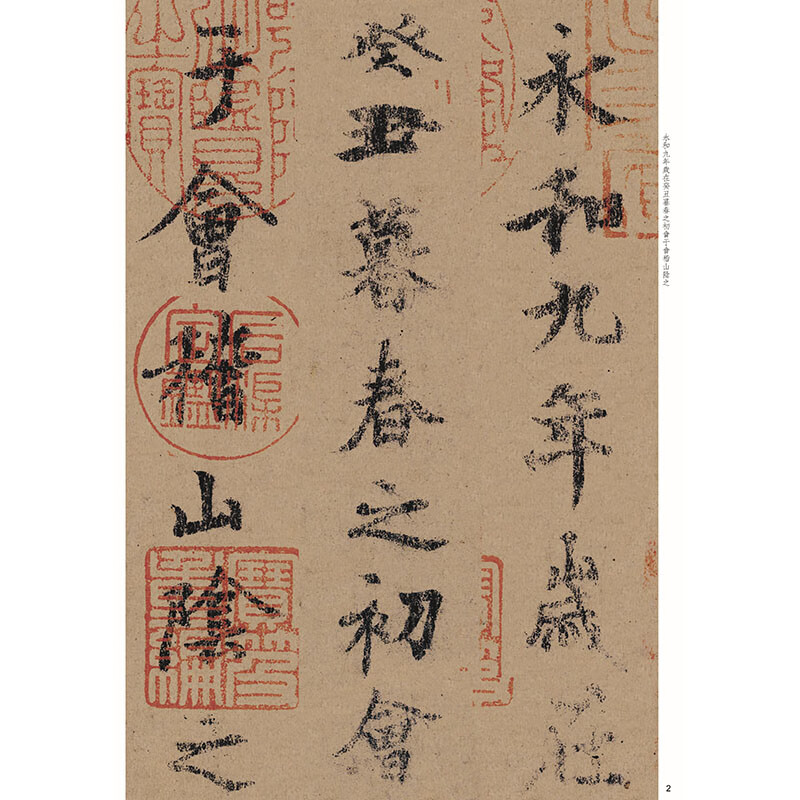 永和九年歲在
癸丑暮春之初會
于會稽山陰之
永和九年歲在癸丑暮春之初會于會稽山陰之
2